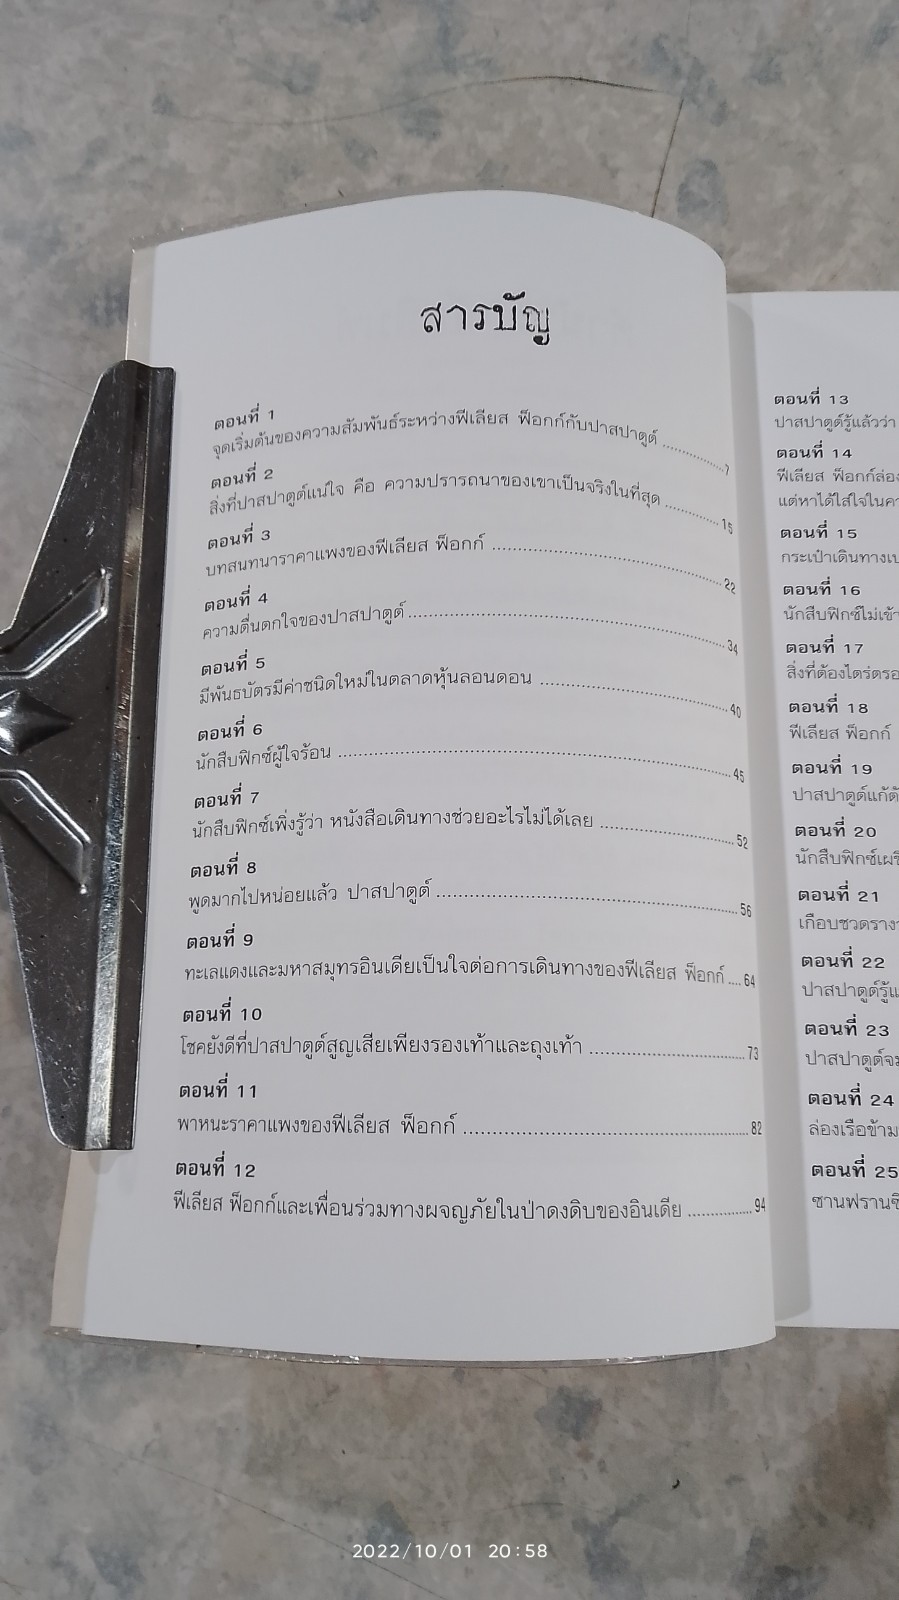 สารบัญ
ตอนที่ 1
จุดเริ่มต้นของความสัมพันธ์ระหว่างฟีเลียส ฟ็อกก์กับปาสปาตูต์ ........ 7
ตอนที่ 2
สิ่งที่ปาสปาตูต์แน่ใจ คือ ความปรารถนาของเขาเป็นจริงในที่สุด ........ 15
ตอนที่ 3
บทสนทนาราคาแพงของฟีเลียส ฟ็อกก์ ........ 22
ตอนที่ 4
ความตื่นตกใจของปาสปาตูต์ ........ 34
ตอนที่ 5
มีพันธบัตรมีค่าชนิดใหม่ในตลาดหุ้นลอนดอน ........ 40
ตอนที่ 6
นักสืบฟิกซ์ผู้ใจร้อน ........ 45
ตอนที่ 7
นักสืบฟิกซ์เพิ่งรู้ว่า หนังสือเดินทางช่วยอะไรไม่ได้เลย ........ 52
ตอนที่ 8
พูดมากไปหน่อยแล้ว ปาสปาตูต์ ........ 56
ตอนที่ 9
ทะเลแดงและมหาสมุทรอินเดียเป็นใจต่อการเดินทางของฟีเลียส ฟ็อกก์ .... 64
ตอนที่ 10
โชคยังดีที่ปาสปาตูต์สูญเสียเพียงรองเท้าและถุงเท้า ........ 73
ตอนที่ 11
พาหนะราคาแพงของฟีเลียส ฟ็อกก์ ........ 82
ตอนที่ 12
ฟีเลียส ฟ็อกก์และเพื่อนร่วมทางผจญภัยในป่าดงดิบของอินเดีย ........ 94
ตอนที่ 13
ปาสปาตูต์รู้แล้วว่า
ตอนที่ 14
ฟีเลียส ฟ็อกก์ล่อง
แต่หาได้ใส่ใจในคว
ตอนที่ 15
กระเป๋าเดินทางเบ
ตอนที่ 16
นักสืบฟิกซ์ไม่เข้า
ตอนที่ 17
สิ่งที่ต้องไตร่ตรอ
ตอนที่ 18
ฟีเลียส ฟ็อกก์
ตอนที่ 19
ปาสปาตูต์แก้ตั
ตอนที่ 20
นักสืบฟิกซ์เผชิ
ตอนที่ 21
เกือบชวดราง
ตอนที่ 22
ปาสปาตูต์รู้แ
ตอนที่ 23
ปาสปาตูต์จม
ตอนที่ 24
ล่องเรือข้าม
ตอนที่ 25
ซานฟรานซิ
2022/10/01 20:58